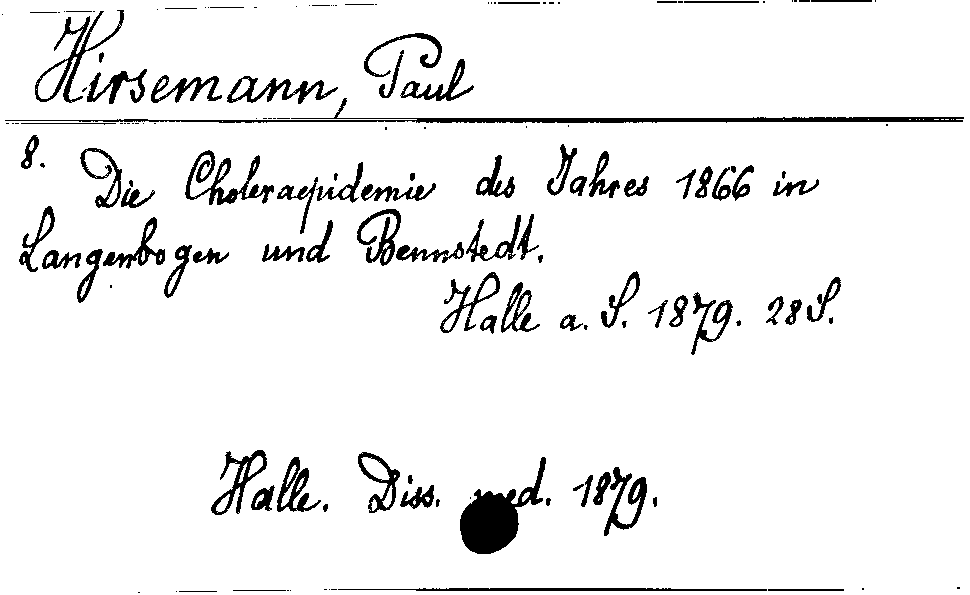 Hirsemann, Paul
8.
Die Choleraepidemie des Jahres 1866 in
Langenbogen und Bennstedt.
Halle a. S. 1879. 28 S.
Halle. Diss. med. 1879.